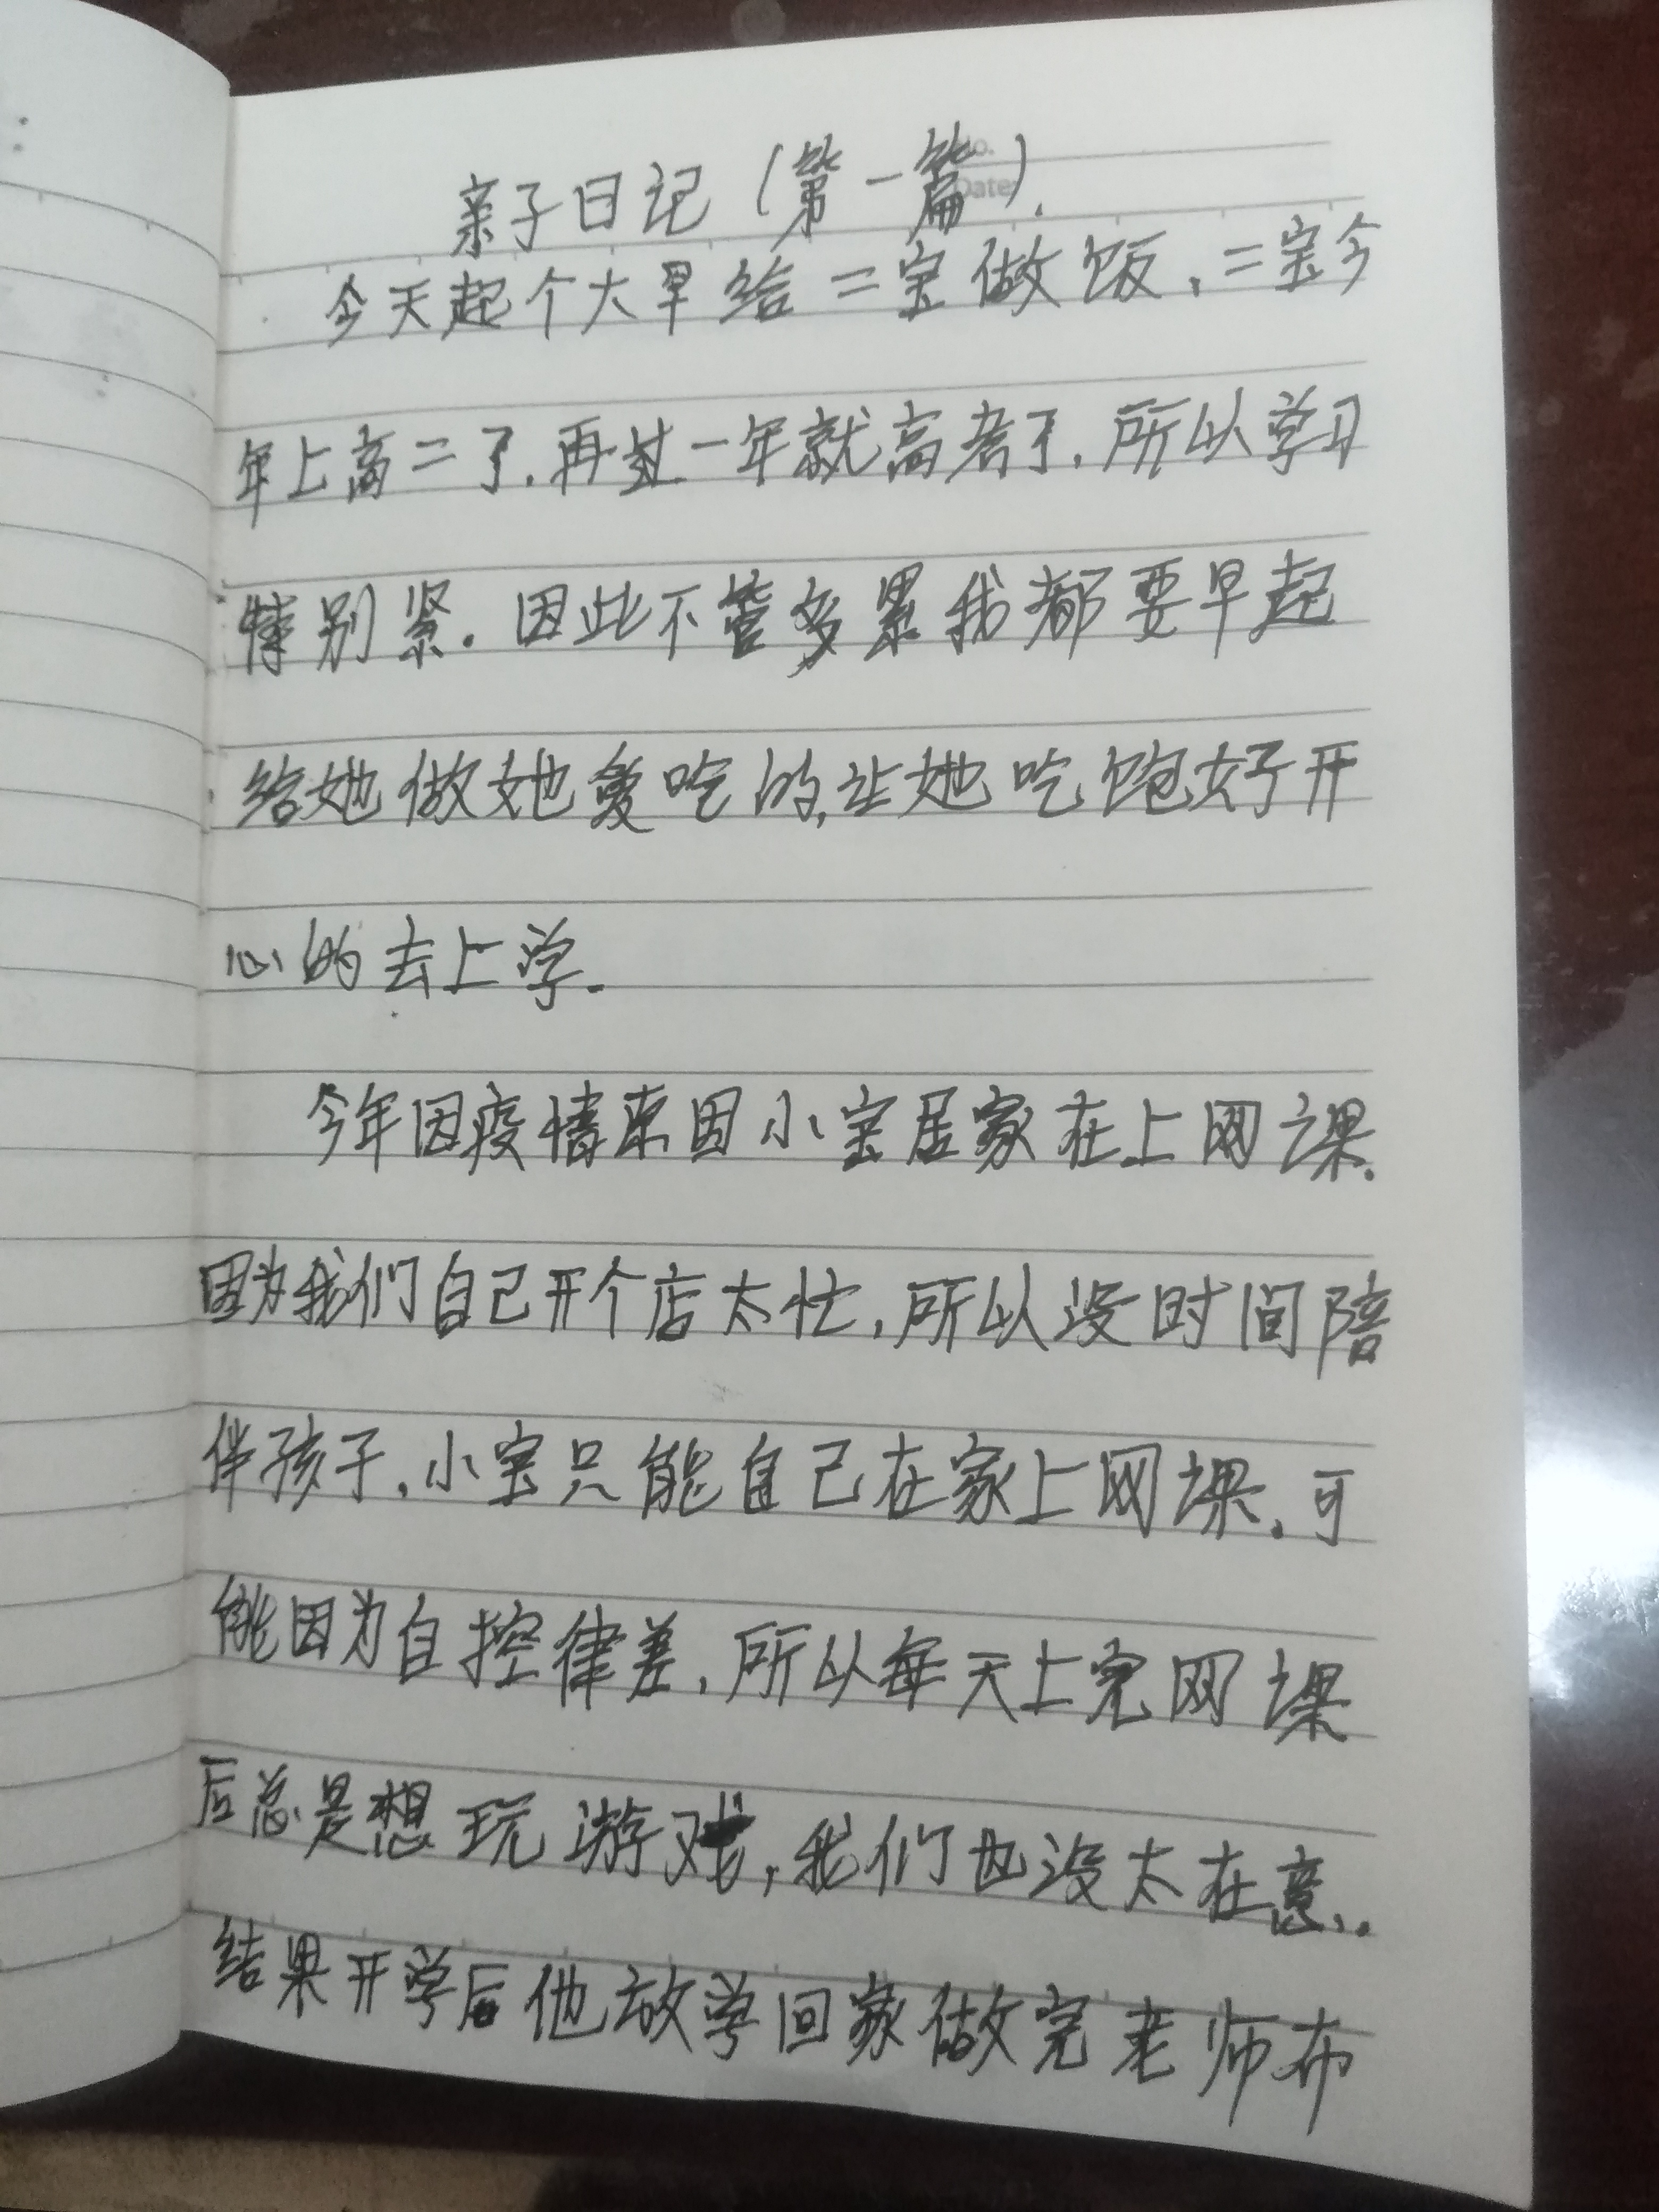 No.
Date:
亲子日记(第一篇).
今天起个大早给二宝做饭,二宝今
年上高二了.再过一年就高考了.所以学习
特别紧.因此不管多累我都要早起
给她做她爱吃的,让她吃饱好开
心的去上学.
今年因疫情原因小宝居家在上网课.
因为我们自己开个店太忙,所以没时间陪
伴孩子.小宝只能自己在家上网课.可
能因为自控律差,所以每天上完网课
后总是想玩游戏,我们也没太在意..
结果开学后他放学回家做完老师布